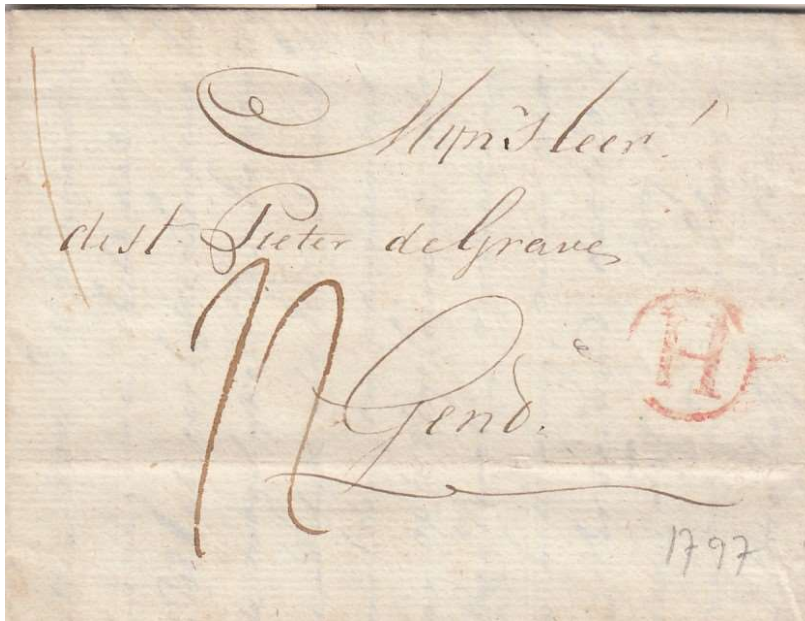 Mijn Heer!
Pieter de Grave
Gend.
H
1797